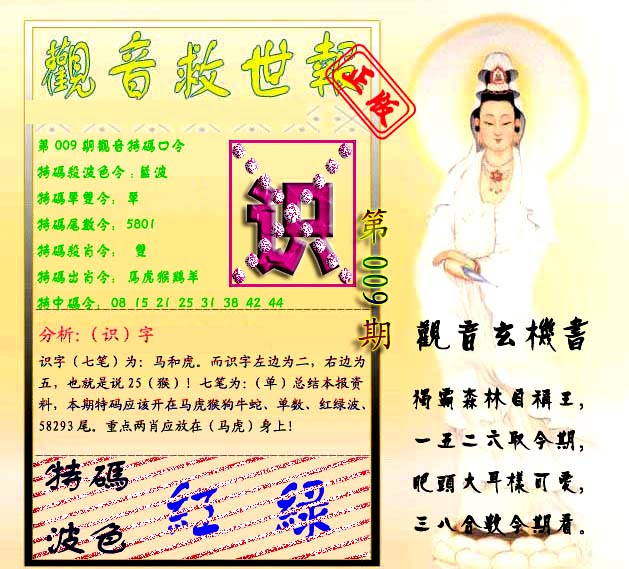 觀音救世報
正版
第009期觀音特碼口令
特碼殺波色令:藍波
特碼單雙令: 單
特碼尾數令: 5801
特碼殺肖令: 雙
特碼出肖令: 馬虎猴鷄羊
特中碼令: 08 15 21 25 31 38 42 44
识
第009期
分析:(识)字
识字(七笔)为: 马和虎。而识字左边为二, 右边为
五, 也就是说25(猴)! 七笔为:(单)总结本报资
料, 本期特码应该开在马虎猴狗牛蛇、单数、红绿波、
58293尾。重点两肖应放在(马虎)身上!
特碼
波色
紅 綠
觀音玄機書
獨霸森林自稱王,
一五二六取今期,
肥頭大耳樣可愛,
三八合數今期看。